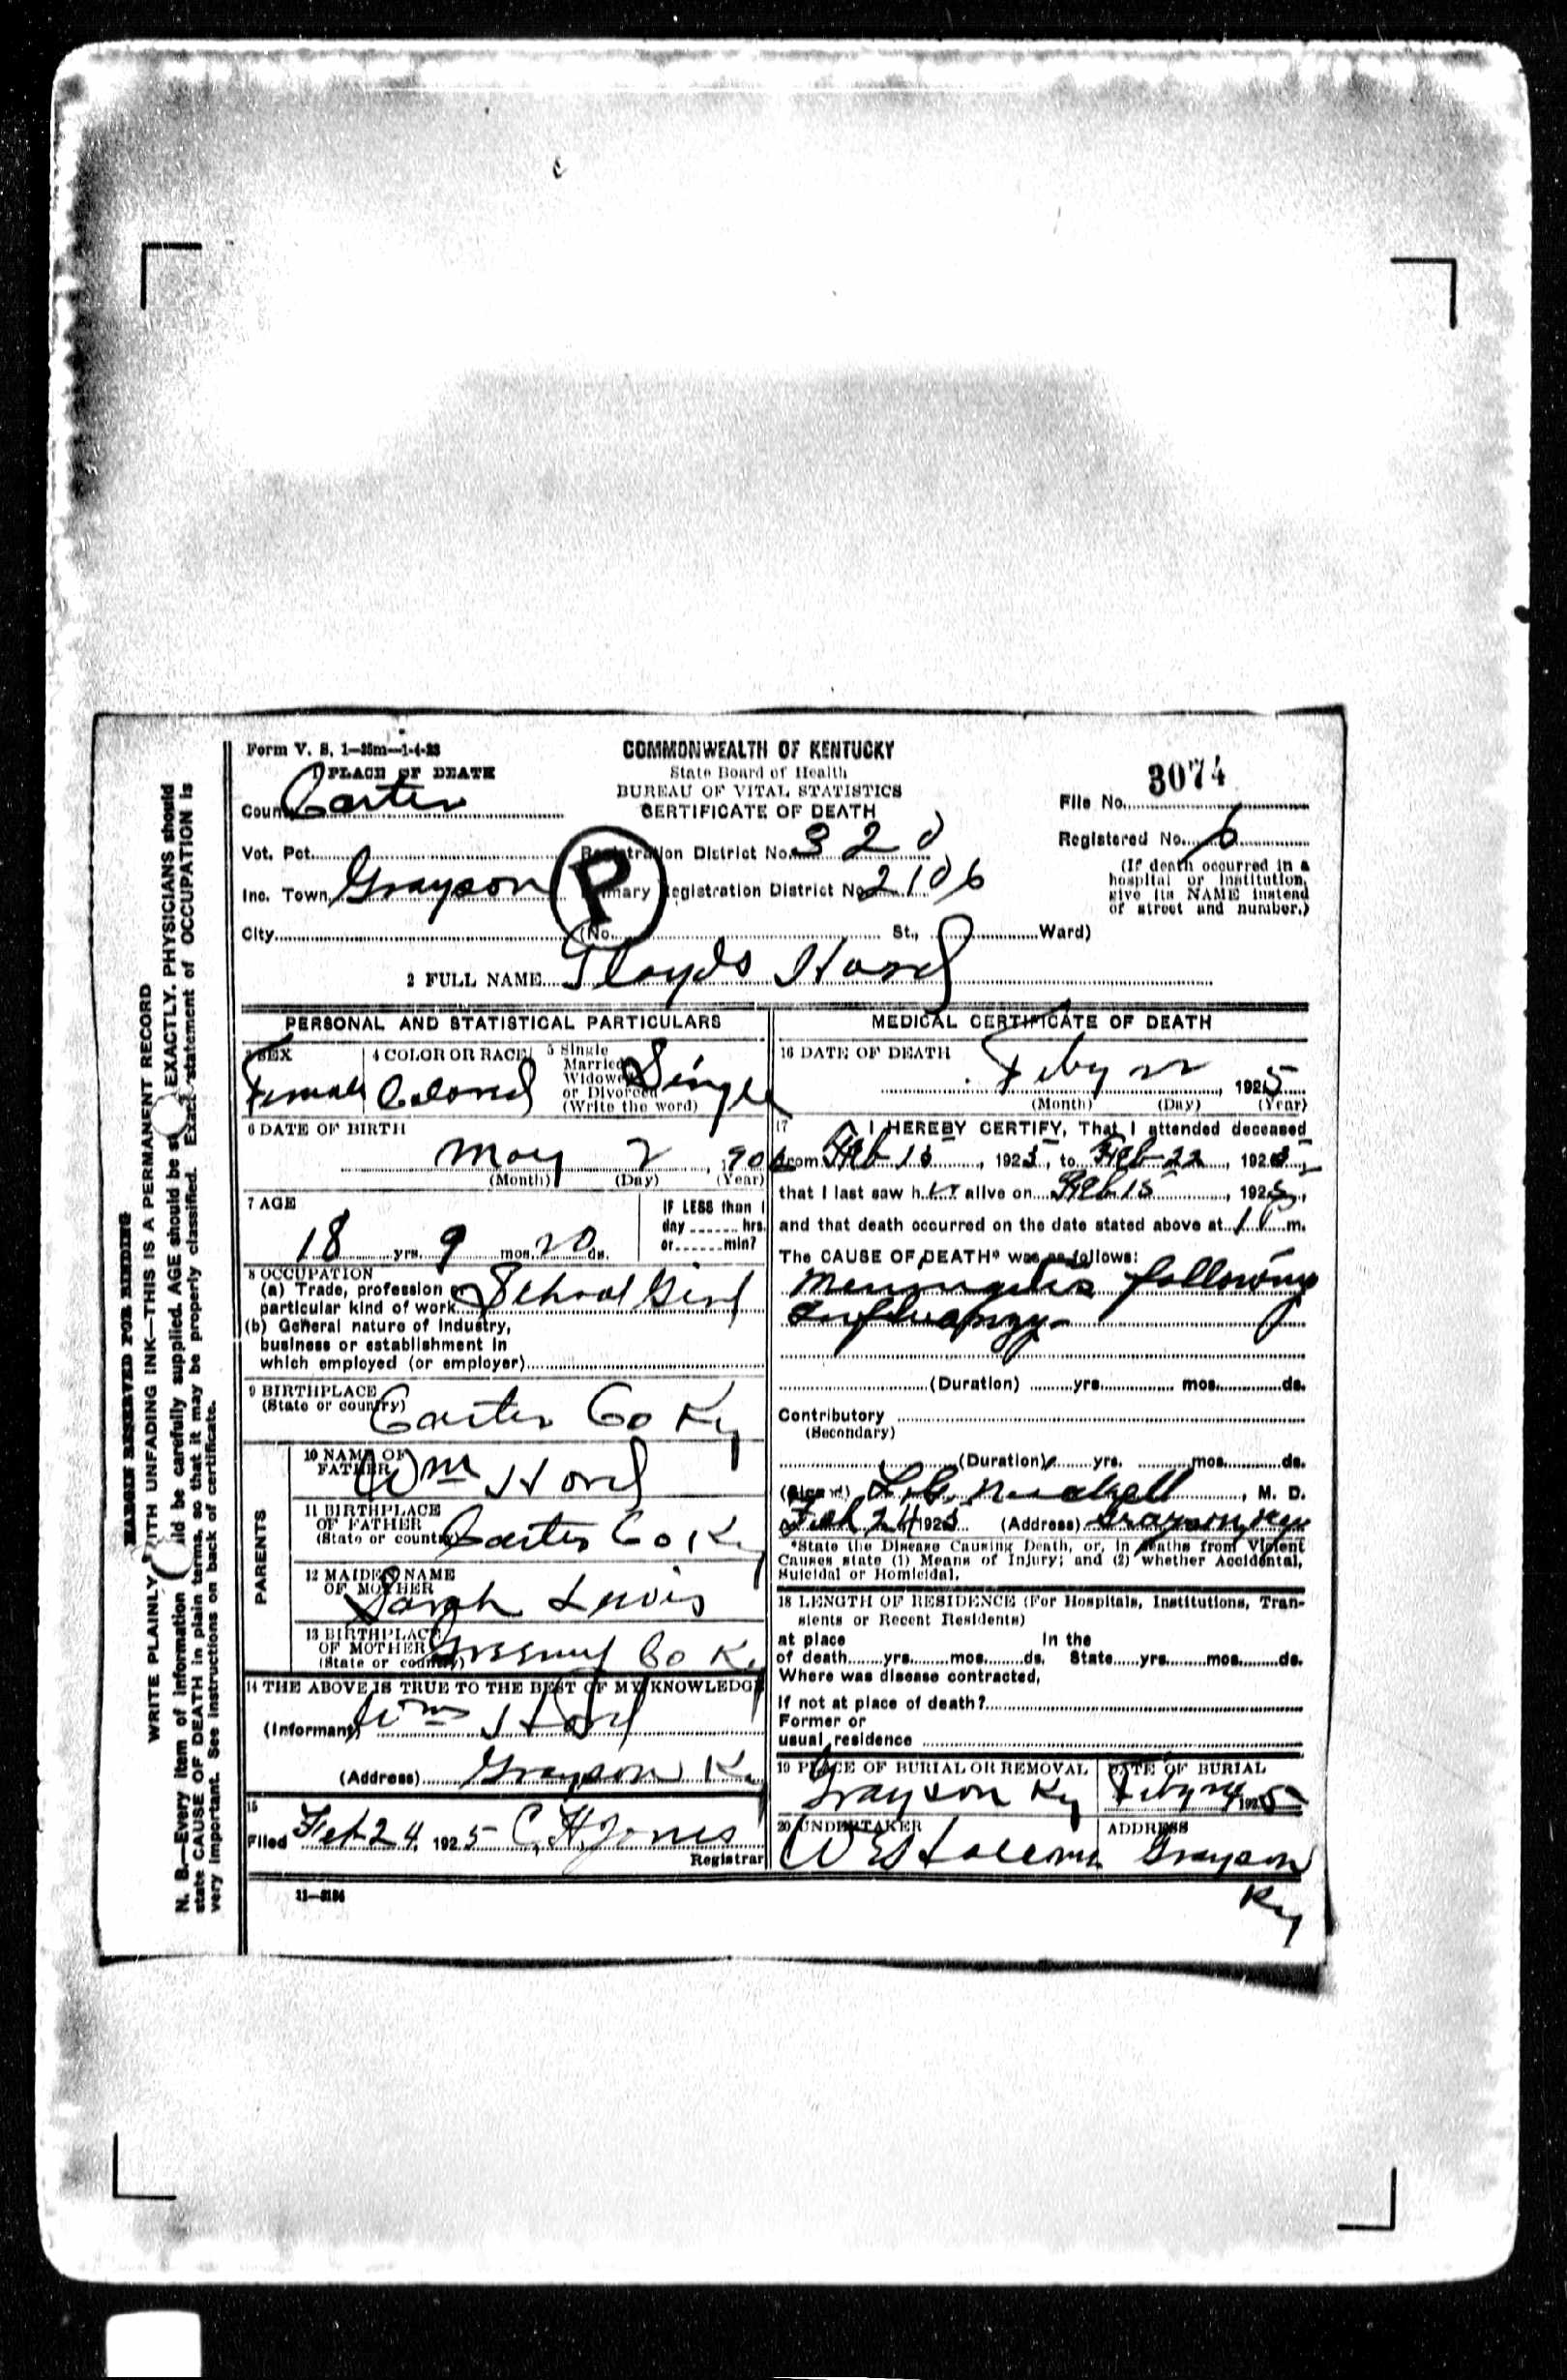 Form V. S. 1—25m—1-4-23
COMMONWEALTH OF KENTUCKY
State Board of Health
BUREAU OF VITAL STATISTICS
CERTIFICATE OF DEATH
1 PLACE OF DEATH
County Carter
File No. 3074
Registered No. 6
(If death occurred in a
hospital or institution,
give its NAME instead
of street and number.)
Vot. Pct.
Registration District No. 320
Inc. Town Grayson
Primary Registration District No. 2106
P
City (No. St., Ward)
2 FULL NAME Hord
PERSONAL AND STATISTICAL PARTICULARS
3 SEX
Female
4 COLOR OR RACE
Colored
5 Single
Married
Widowed
or Divorced
(Write the word)
Single
6 DATE OF BIRTH
May 2, 1906
(Month) (Day) (Year)
7 AGE
18 yrs. 9 mos. 20 ds.
IF LESS than 1
day hrs.
or min?
8 OCCUPATION
(a) Trade, profession or
particular kind of work School Girl
(b) General nature of industry,
business or establishment in
which employed (or employer)
9 BIRTHPLACE
(State or country) Carter Co Ky
PARENTS
10 NAME OF
FATHER Wm Hord
11 BIRTHPLACE
OF FATHER
(State or country) Carter Co Ky
12 MAIDEN NAME
OF MOTHER
Sarah Lewis
13 BIRTHPLACE
OF MOTHER
(State or country) Co Ky
14 THE ABOVE IS TRUE TO THE BEST OF MY KNOWLEDGE
(Informant) Wm Hord
(Address) Grayson Ky
15
Filed Feb 24, 1925 C. H. Jones
Registrar
11—3184
MEDICAL CERTIFICATE OF DEATH
16 DATE OF DEATH
Feby 22, 1925
(Month) (Day) (Year)
17 I HEREBY CERTIFY, That I attended deceased
from Feb 15, 1925, to Feb 22, 1925,
that I last saw her alive on Feb 15, 1925,
and that death occurred on the date stated above at m.
The CAUSE OF DEATH* was as follows:
Meningitis following
influenza
(Duration) yrs. mos. ds.
Contributory
(Secondary)
(Duration) yrs. mos. ds.
(Signed) , M. D.
Feb 24 1925 (Address) Grayson, Ky
*State the Disease Causing Death, or, in deaths from Violent
Causes state (1) Means of Injury; and (2) whether Accidental,
Suicidal or Homicidal.
18 LENGTH OF RESIDENCE (For Hospitals, Institutions, Tran-
sients or Recent Residents)
at place In the
of death yrs. mos. ds. State yrs. mos. ds.
Where was disease contracted,
If not at place of death?
Former or
usual residence
19 PLACE OF BURIAL OR REMOVAL
Grayson Ky
DATE OF BURIAL
Feby 24, 1925
20 UNDERTAKER
W E
ADDRESS
Grayson
Ky
MARGIN RESERVED FOR BINDING
WRITE PLAINLY WITH UNFADING INK—THIS IS A PERMANENT RECORD
N. B.—Every item of information should be carefully supplied. AGE should be stated EXACTLY. PHYSICIANS should
state CAUSE OF DEATH in plain terms, so that it may be properly classified. Exact statement of OCCUPATION is
very important. See instructions on back of certificate.